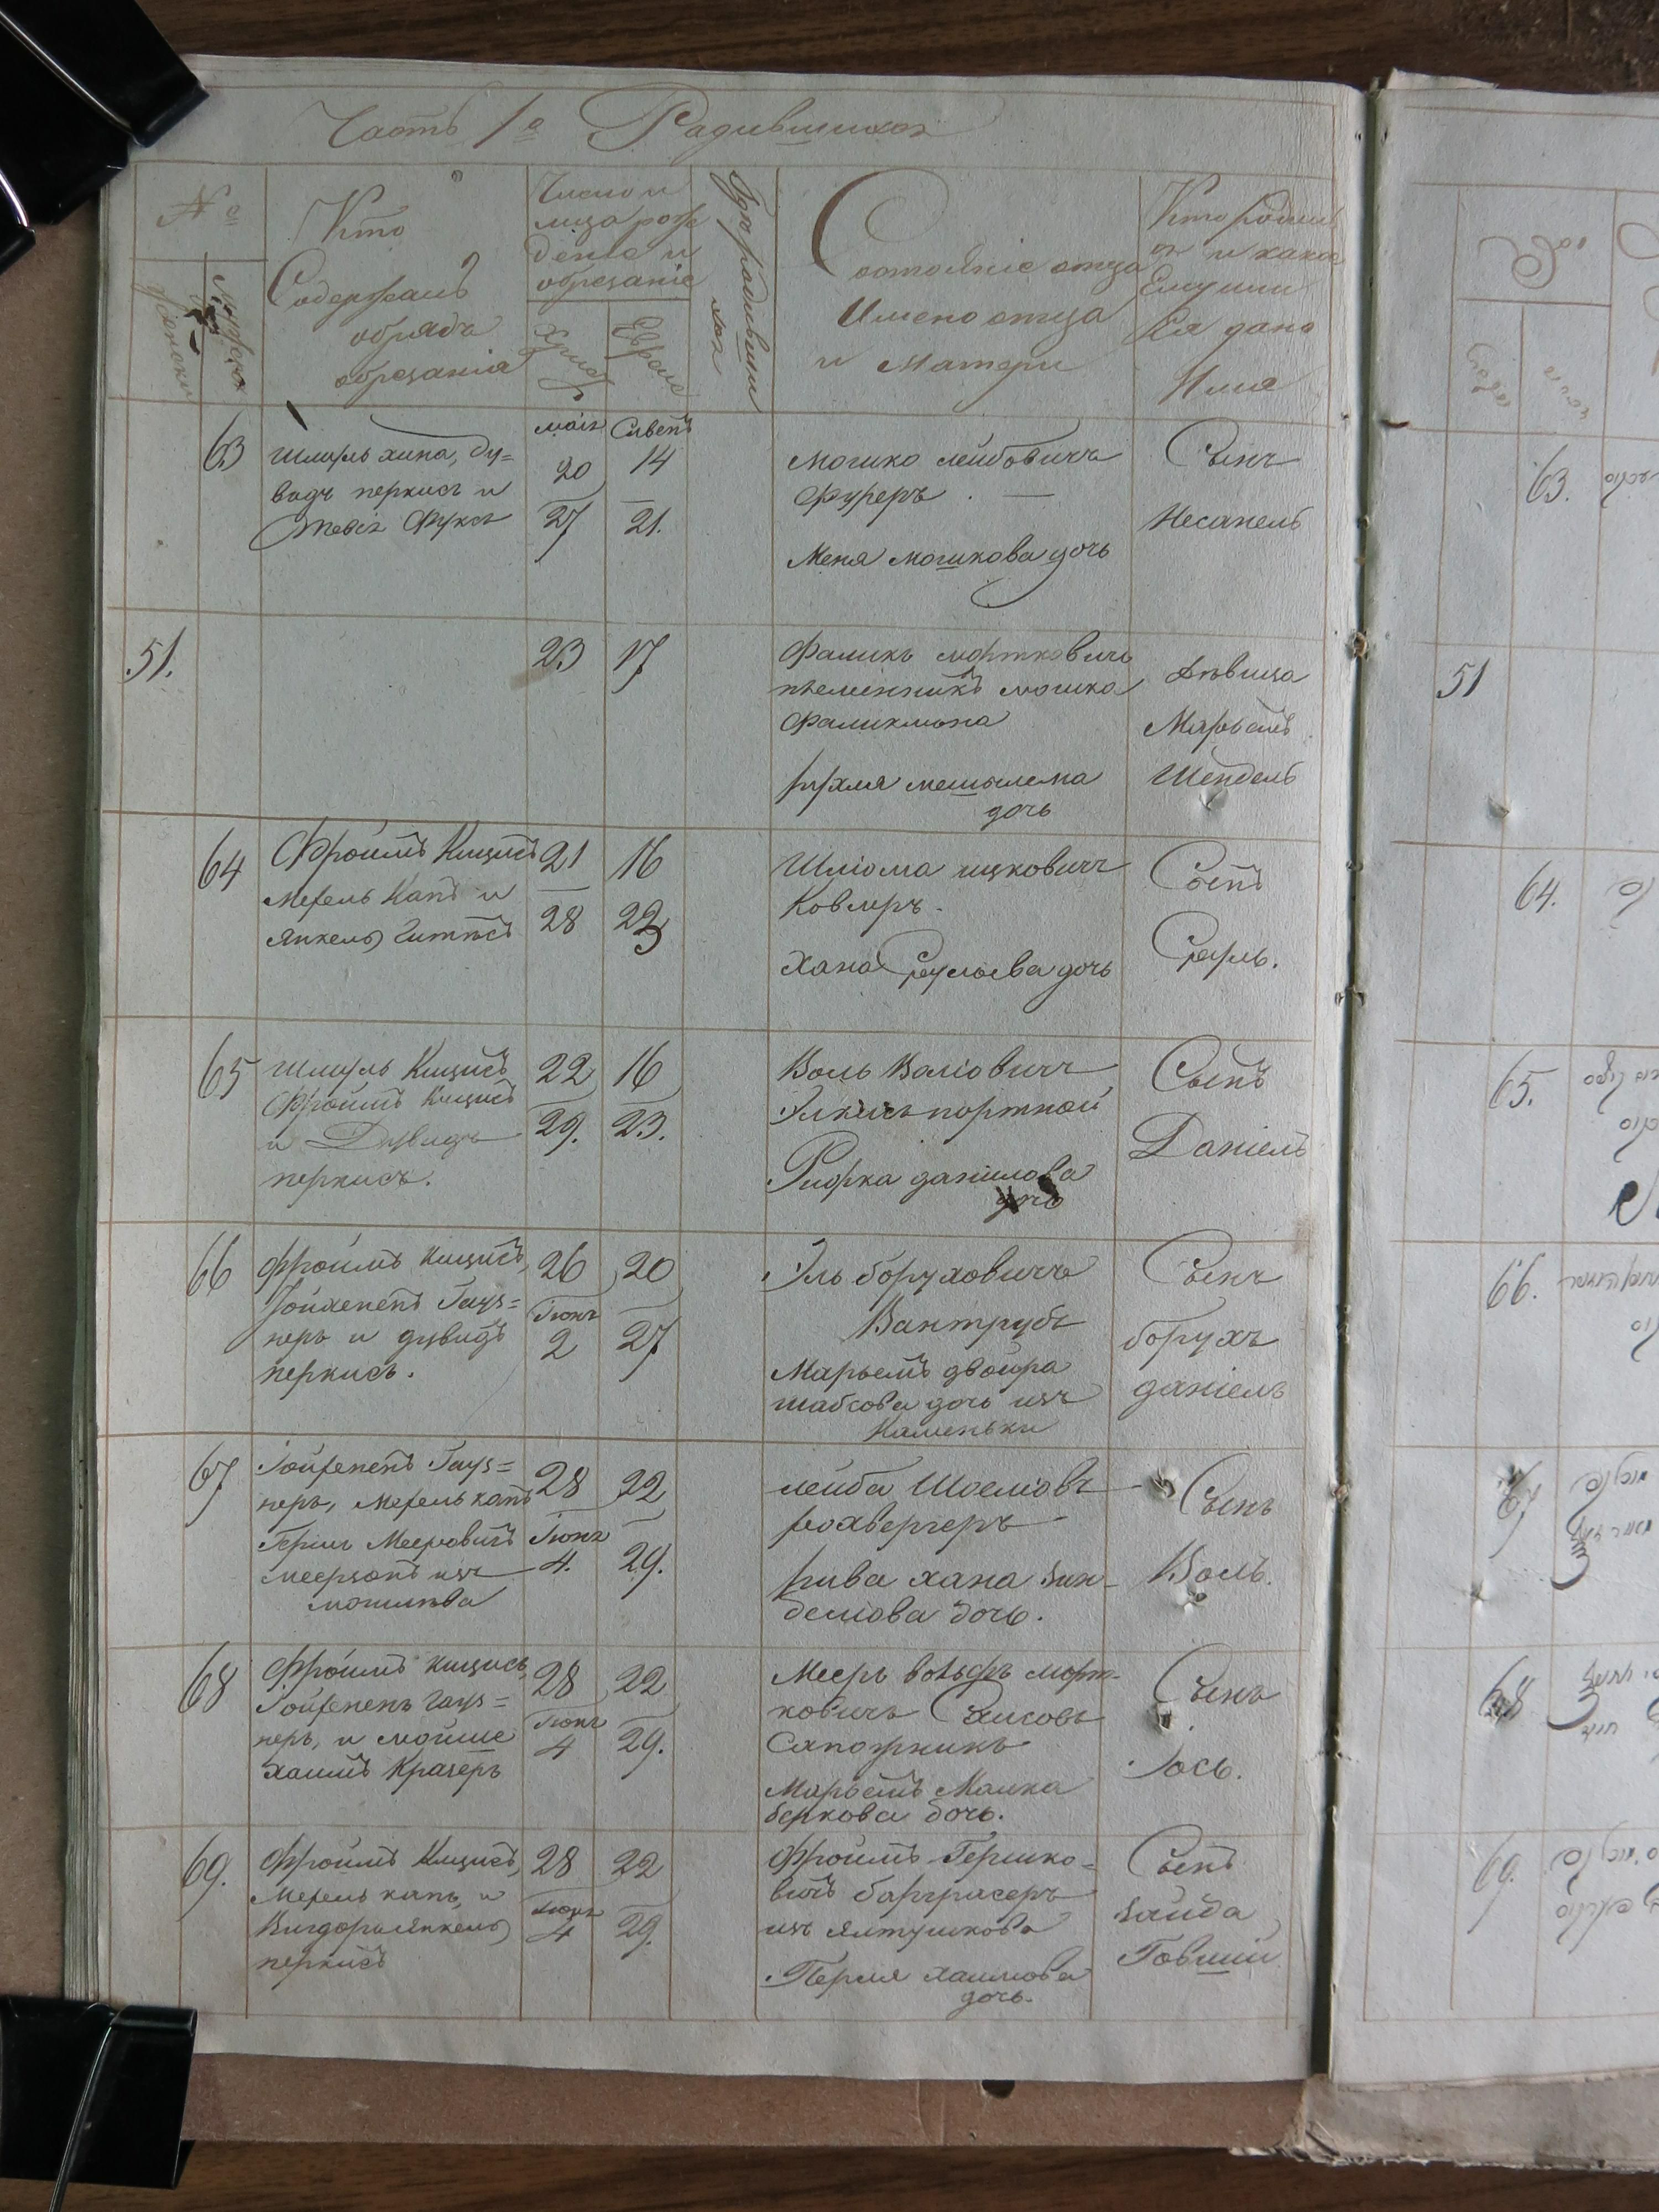 Часть 1я Радившихся
№
Женски
Мужеск
Кто
Содержалъ
обрядъ
обрезанія
Число и
мца рож
деніе и
обрезаніе
Христ
Еврейс
Гдѣ радивши
хся
Состояніе отца
Имено отца
и Матери
Кто родил
ся и какое
Ему или
Ея дано
Имя
63
Шмуль хипа, ду=
видъ перкисъ и
Тевія Фуксъ
маія
20
27
Сивенъ
14
21.
Мошко лейбовичъ
Фуреръ. —
Меня мошкова дочь
Сынъ
Несанель
51.
23
17
Фаликъ мортковичъ
племенникъ мошка
Фаликмана
рухля мешылема
дочь
Дѣвица
Марьемъ
Шендель
64
Фроимъ Кицисъ
Мехель Капъ и
Янкель Гитнъсъ
21
28
16
23
Шліома ицковичъ
Ковлеръ.
Хана Сруліова дочь
Сынъ
Сруль.
65
Шмуль Кицисъ
Фроимъ Кицисъ
и Дувидъ
перкисъ.
22
29.
16
23.
Воль Воліовичъ
Элкисъ портной
Ривка данилова
дочь
Сынъ
Даніель
66
Фроимъ кицисъ,
Іойхененъ Гауз=
неръ и дувидъ
перкисъ.
26
Іюнъ
2
20
27
Эль боруховичъ
Вантрубъ
Марьемъ двойра
шабсова дочь изъ
Каменьки
Сынъ
борухъ
даніель
67
Іойхененъ Гауз=
неръ, Мехель капъ
Гершъ Мееровичъ
меерзонъ изъ
могилѣва
28
Іюнъ
4.
22
29.
лейба Шоеліовъ
рохвергеръ
рива хана зин-
делюва дочь.
Сынъ
Воль.
68
Фроимъ кицисъ
Іойхененъ Гауз=
неръ, и мойше
хаимъ Крагеръ
28
Іюнъ
4
22
29.
Меерь вольфъ морт-
ковичъ
Сапожникъ
Марьемъ Малка
беркова дочь.
Сынъ
Іось.
69.
Фроимъ Кицисъ,
Мехель капъ, и
Вигдоръ Янкель
перкисъ
28
Іюнъ
4
22
29.
Фроимъ Гершко=
вичъ
изъ Ялтушкова
Перля хаимова
дочь.
Сынъ
зайда
Говшій
63.
51
64.
65.
66.
67
68
69.